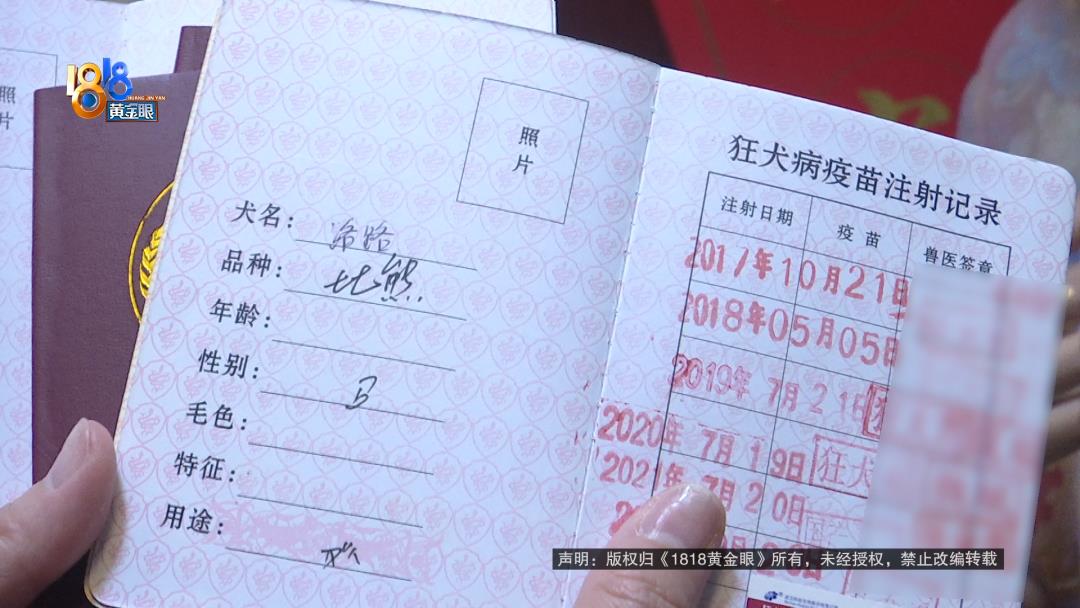 1818
HUANG JIN YAN
黄金眼
照
片
照
片
犬名：路路
品种：比熊
年龄：
性别：
毛色：
特征：
用途：
狂犬病疫苗注射记录
注射日期 疫苗 兽医签章
2017年10月21日
2018年05月05日
2019年 7月21日
2020年 7月19日 狂犬
2021年 7月20日
声明：版权归《1818黄金眼》所有，未经授权，禁止改编转载